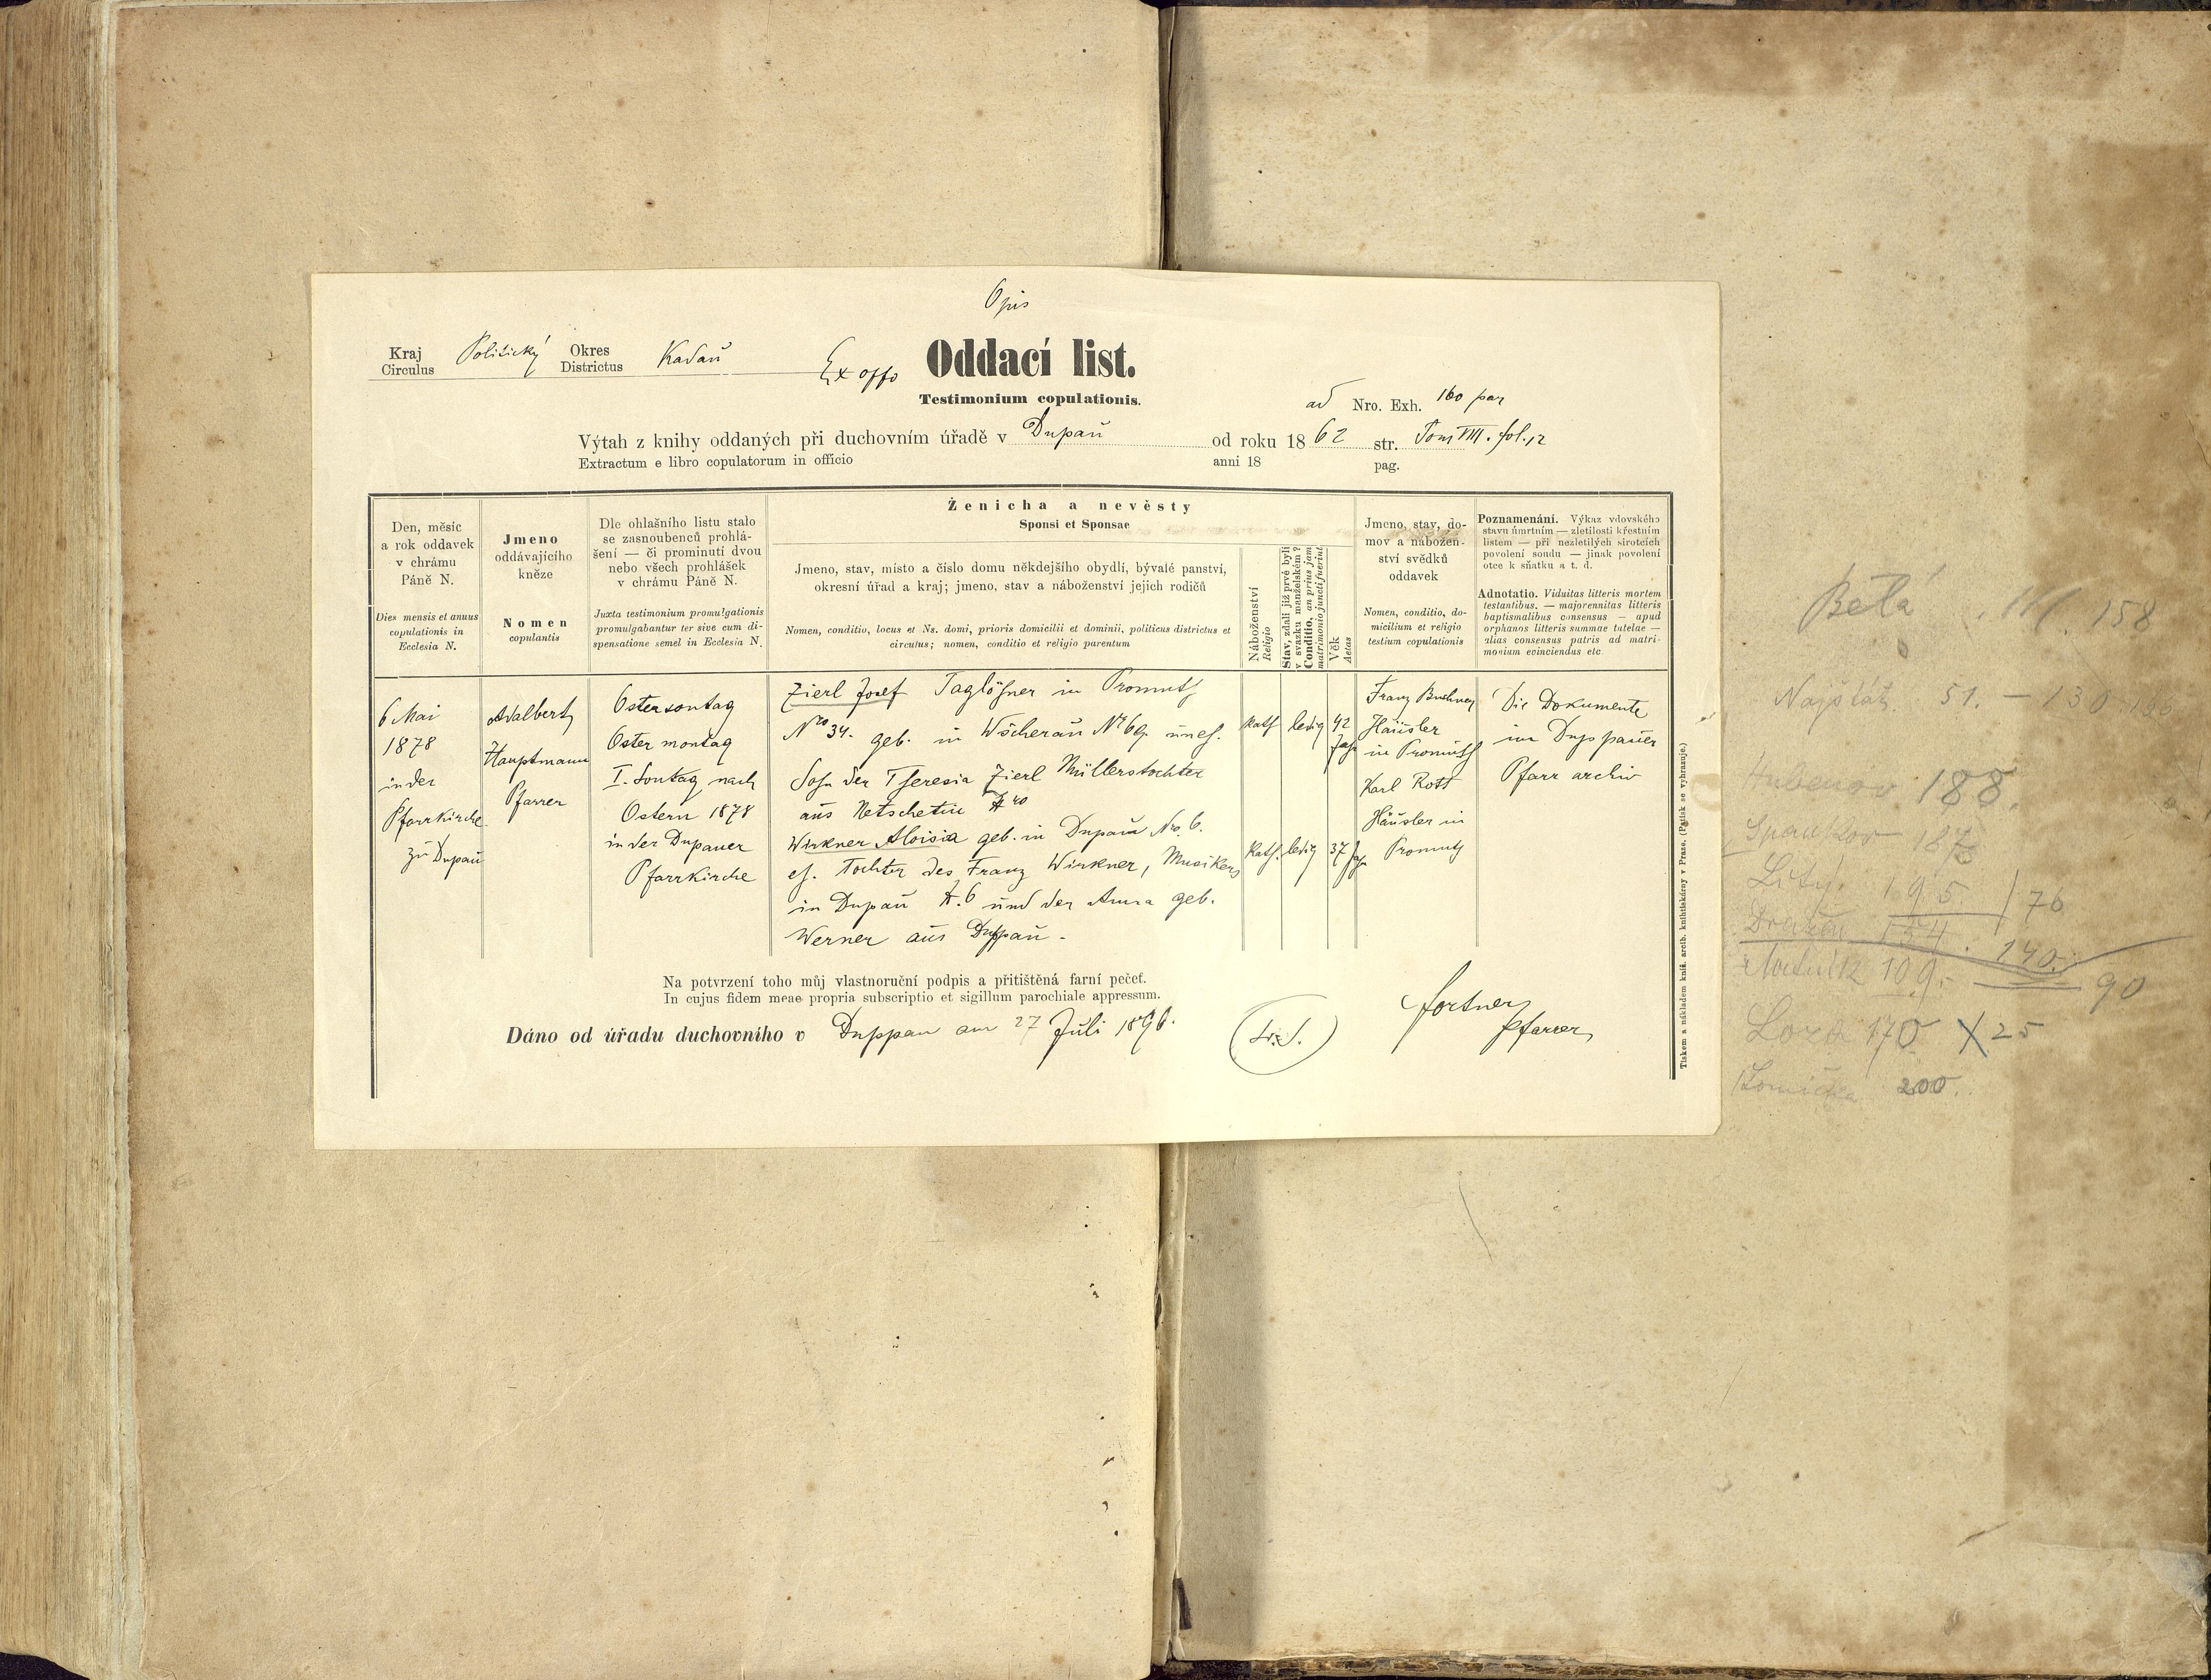 Opis
Kraj Politický Okres Kadaň
Circulus Districtus
Ex offo
Oddací list.
Testimonium copulationis.
ad Nro. Exh. 160 par
Výtah z knihy oddaných při duchovním úřadě v Dupaŭ od roku 18 62 str. Tom VIII. fol. 12
Extractum e libro copulatorum in officio anni 18 pag.
Den, měsíc
a rok oddavek
v chrámu
Páně N.
Dies mensis et anuus
copulationis in
Ecclesia N.
Jmeno
oddávajícího
kněze
Nomen
copulantis
Dle ohlašního listu stalo
se zasnoubenců prohlá-
šení — či prominutí dvou
nebo všech prohlášek
v chrámu Páně N.
Juxta testimonium promulgationis
promulgabantur ter sive cum di-
spensatione semel in Ecclesia N.
Ženicha a nevěsty
Sponsi et Sponsae
Jmeno, stav, místo a číslo domu někdejšího obydlí, bývalé panství,
okresní úřad a kraj; jmeno, stav a náboženství jejich rodičů
Nomen, conditio, locus et Ns. domi, prioris domicilii et dominii, politicus districtus et
circulus; nomen, conditio et religio parentum
Náboženství
Religio
Stav, zdali již prvé byli
v svazku manželském?
Conditio, an prius jam
matrimonio juncti fuerint
Věk
Aetas
Jmeno, stav, do-
mov a nábožen-
ství svědků
oddavek
Nomen, conditio, do-
micilium et religio
testium copulationis
Poznamenání. Výkaz vdovského
stavu úmrtním — zletilosti křestním
listem — při nezletilých sirotcích
povolení soudu — jinak povolení
otce k sňatku a t. d.
Adnotatio. Viduitas litteris mortem
testantibus. — majorennitas litteris
baptismalibus consensus — apud
orphanos litteris summae tutelae —
alias consensus patris ad matri-
monium evinciendus etc.
6 Mai
1878
in der
Pfarrkirche
zu Dupaŭ
Adalbert
Hauptmann
Pfarrer
Ostersontag
Ostermontag
I. Sontag nach
Ostern 1878
in der Dupauer
Pfarrkirche
Zierl Josef Taglöhner in Promuth
Nro 34. geb. in Wscheraŭ Nr 69. ŭneh.
Sohn der Theresia Zierl Müllerstochter
aŭs Netschetin N 40
Wirkner Aloisia geb. in Dupaŭ No. 6.
eh. Tochter des Franz Wirkner, Musikers
in Dupaŭ N. 6 ŭnd der Anna geb.
Werner aŭs Duppaŭ.
Kath ledig 42
Jahr
Kath. ledig 37 Jahr
Franz Buchner
Häŭsler
in Promŭth
Karl Rott
Häŭsler in
Promuth
Die Dokumente
im Duppaŭer
Pfarrarchiv
Na potvrzení toho můj vlastnoruční podpis a přitištěná farní pečeť.
In cujus fidem meae propria subscriptio et sigillum parochiale appressum.
Dáno od úřadu duchovního v Duppau am 27 Jŭli 1896.
L. S.
Fortner
Pfarrer
Tiskem a nákladem kníž. arcib. knihtiskárny v Praze. (Patisk se vyhrazuje.)
Bělá 158
51. — 130
188.
187
195 / 76
154 . 140.
109. 90
170 X 25
200.